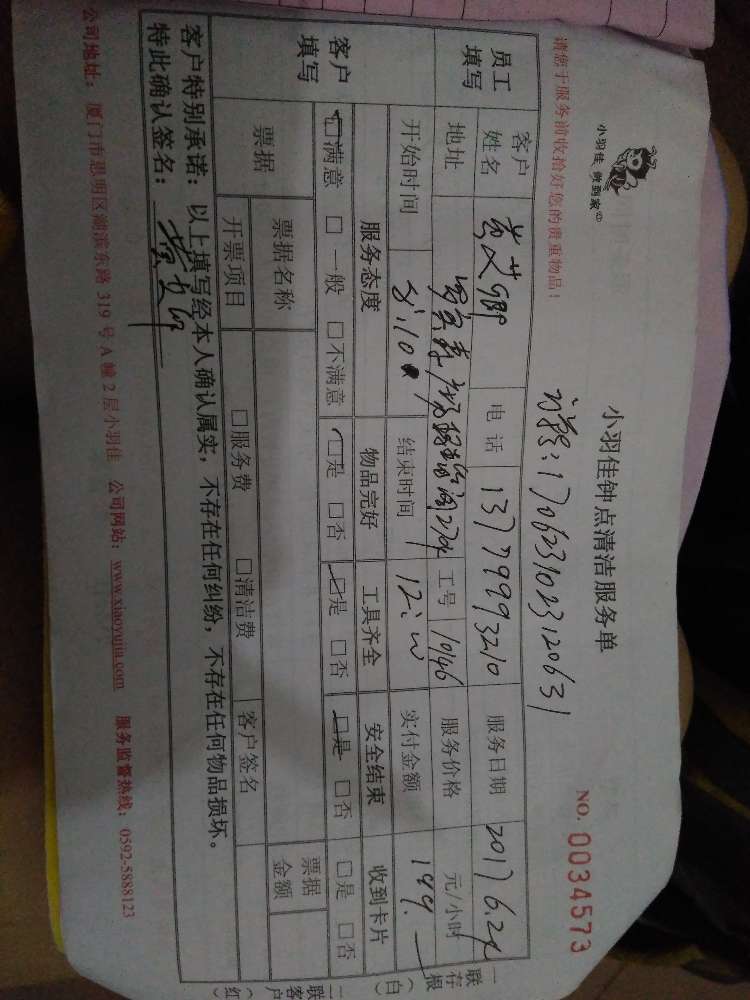 小羽佳 做到家
小羽佳钟点清洁服务单
NO. 0034573
请您于服务前收拾好您的贵重物品！
1706231023120631
员工填写
客户姓名
电话 13779993210
服务日期 2017 6.24
地址
工号 10146
服务价格 元/小时
开始时间 8:10
结束时间 12:00
实付金额 149.
客户填写
服务态度 物品完好 工具齐全 安全结束 收到卡片
☑满意 □一般 □不满意 ☑是 □否 ☑是 □否 ☑是 □否 □是 □否
票据 票据名称 票据金额
开票项目 □服务费 □清洁费 客户签名
客户特别承诺：以上填写经本人确认属实，不存在任何纠纷，不存在任何物品损坏。
特此确认签名：
公司地址：厦门市思明区湖滨东路 319 号 A 幢 2 层小羽佳 公司网站：www.xiaoyujia.com 服务监督热线：0592-5888123
一联存根（白）
二联客户（红